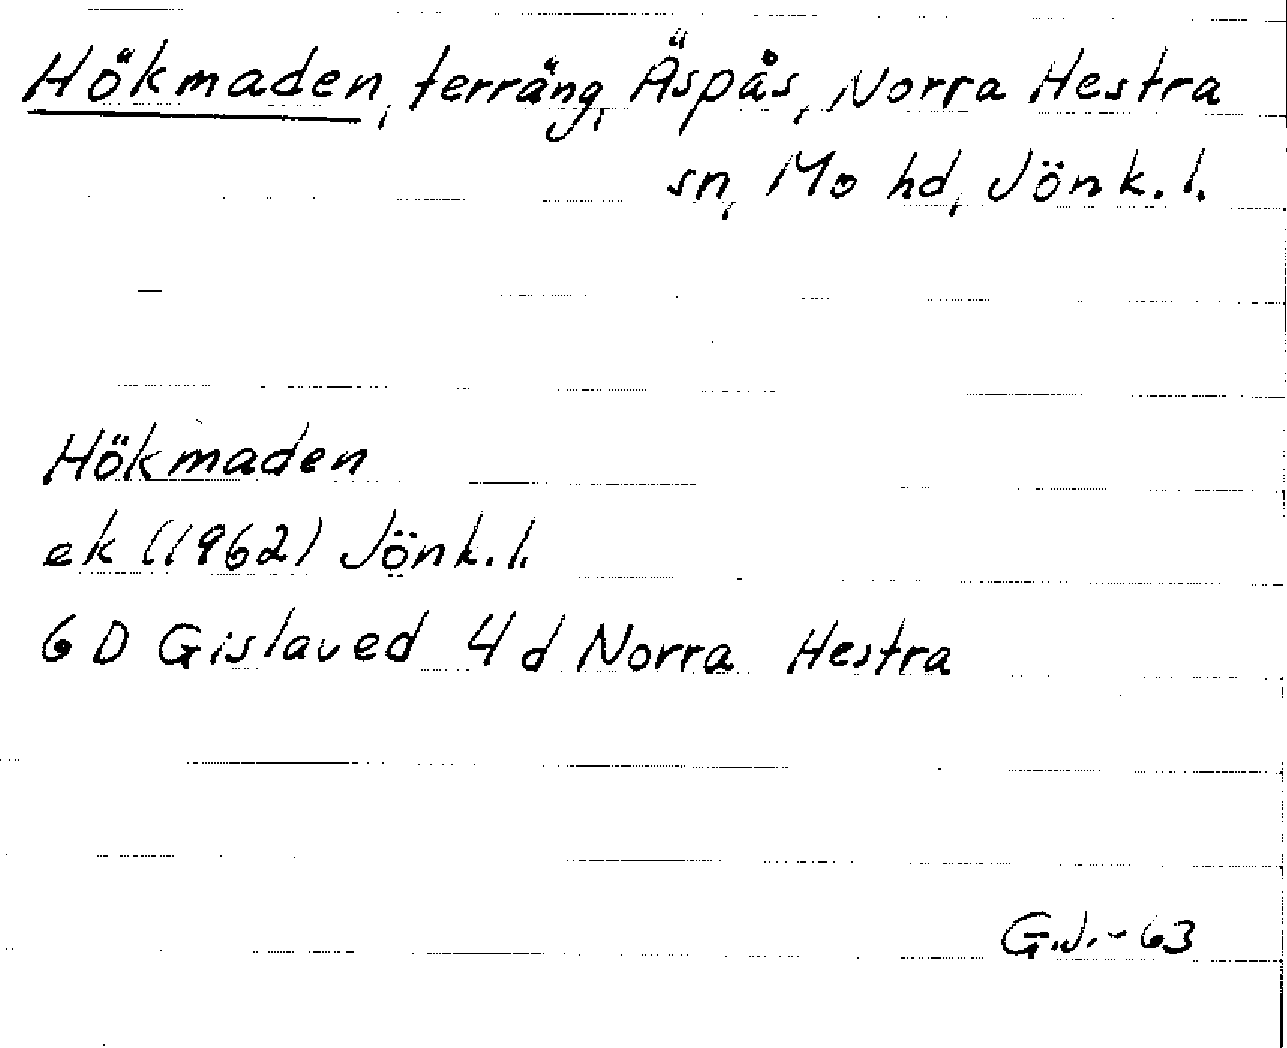 Hökmaden, terräng, Äspås, Norra Hestra
sn, Mo hd, Jönk.l.
Hökmaden
ek (1962) Jönk.l.
6 D Gislaved 4 d Norra Hestra
G.J.-63